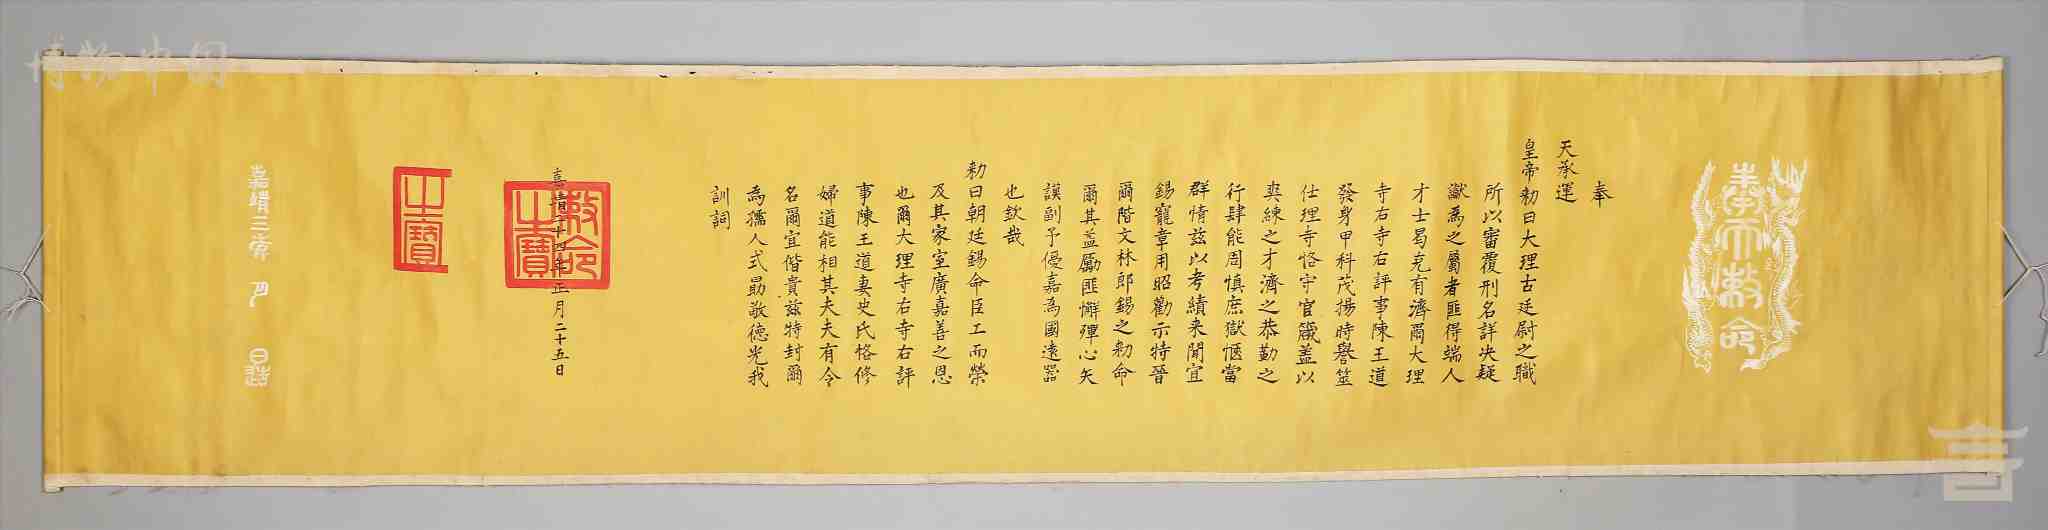 奉天敕命
奉
天承運
皇帝勅曰大理古廷尉之職
所以審覆刑名詳决疑
讞焉之屬者匪得端人
才士曷克有濟爾大理
寺右寺右評事陳王道
發身甲科茂揚時譽筮
仕理寺恪守官箴蓋以
爽練之才濟之恭勤之
行肆能周慎庶獄愜當
群情茲以考績來聞宜
錫寵章用昭勸示特晉
爾階文林郎錫之勅命
爾其益勵匪懈殫心矢
謨副予優嘉為國遠器
也欽哉
勅曰朝廷錫命臣工而榮
及其家室廣嘉善之恩
也爾大理寺右寺右評
事陳王道妻史氏恪修
婦道能相其夫夫有令
名爾宜偕貴茲特封爾
為孺人式勗敬德光我
訓詞
嘉靖三十四年正月二十五日
敕命之寶
之寶
嘉靖三年 月 日造
博物中国